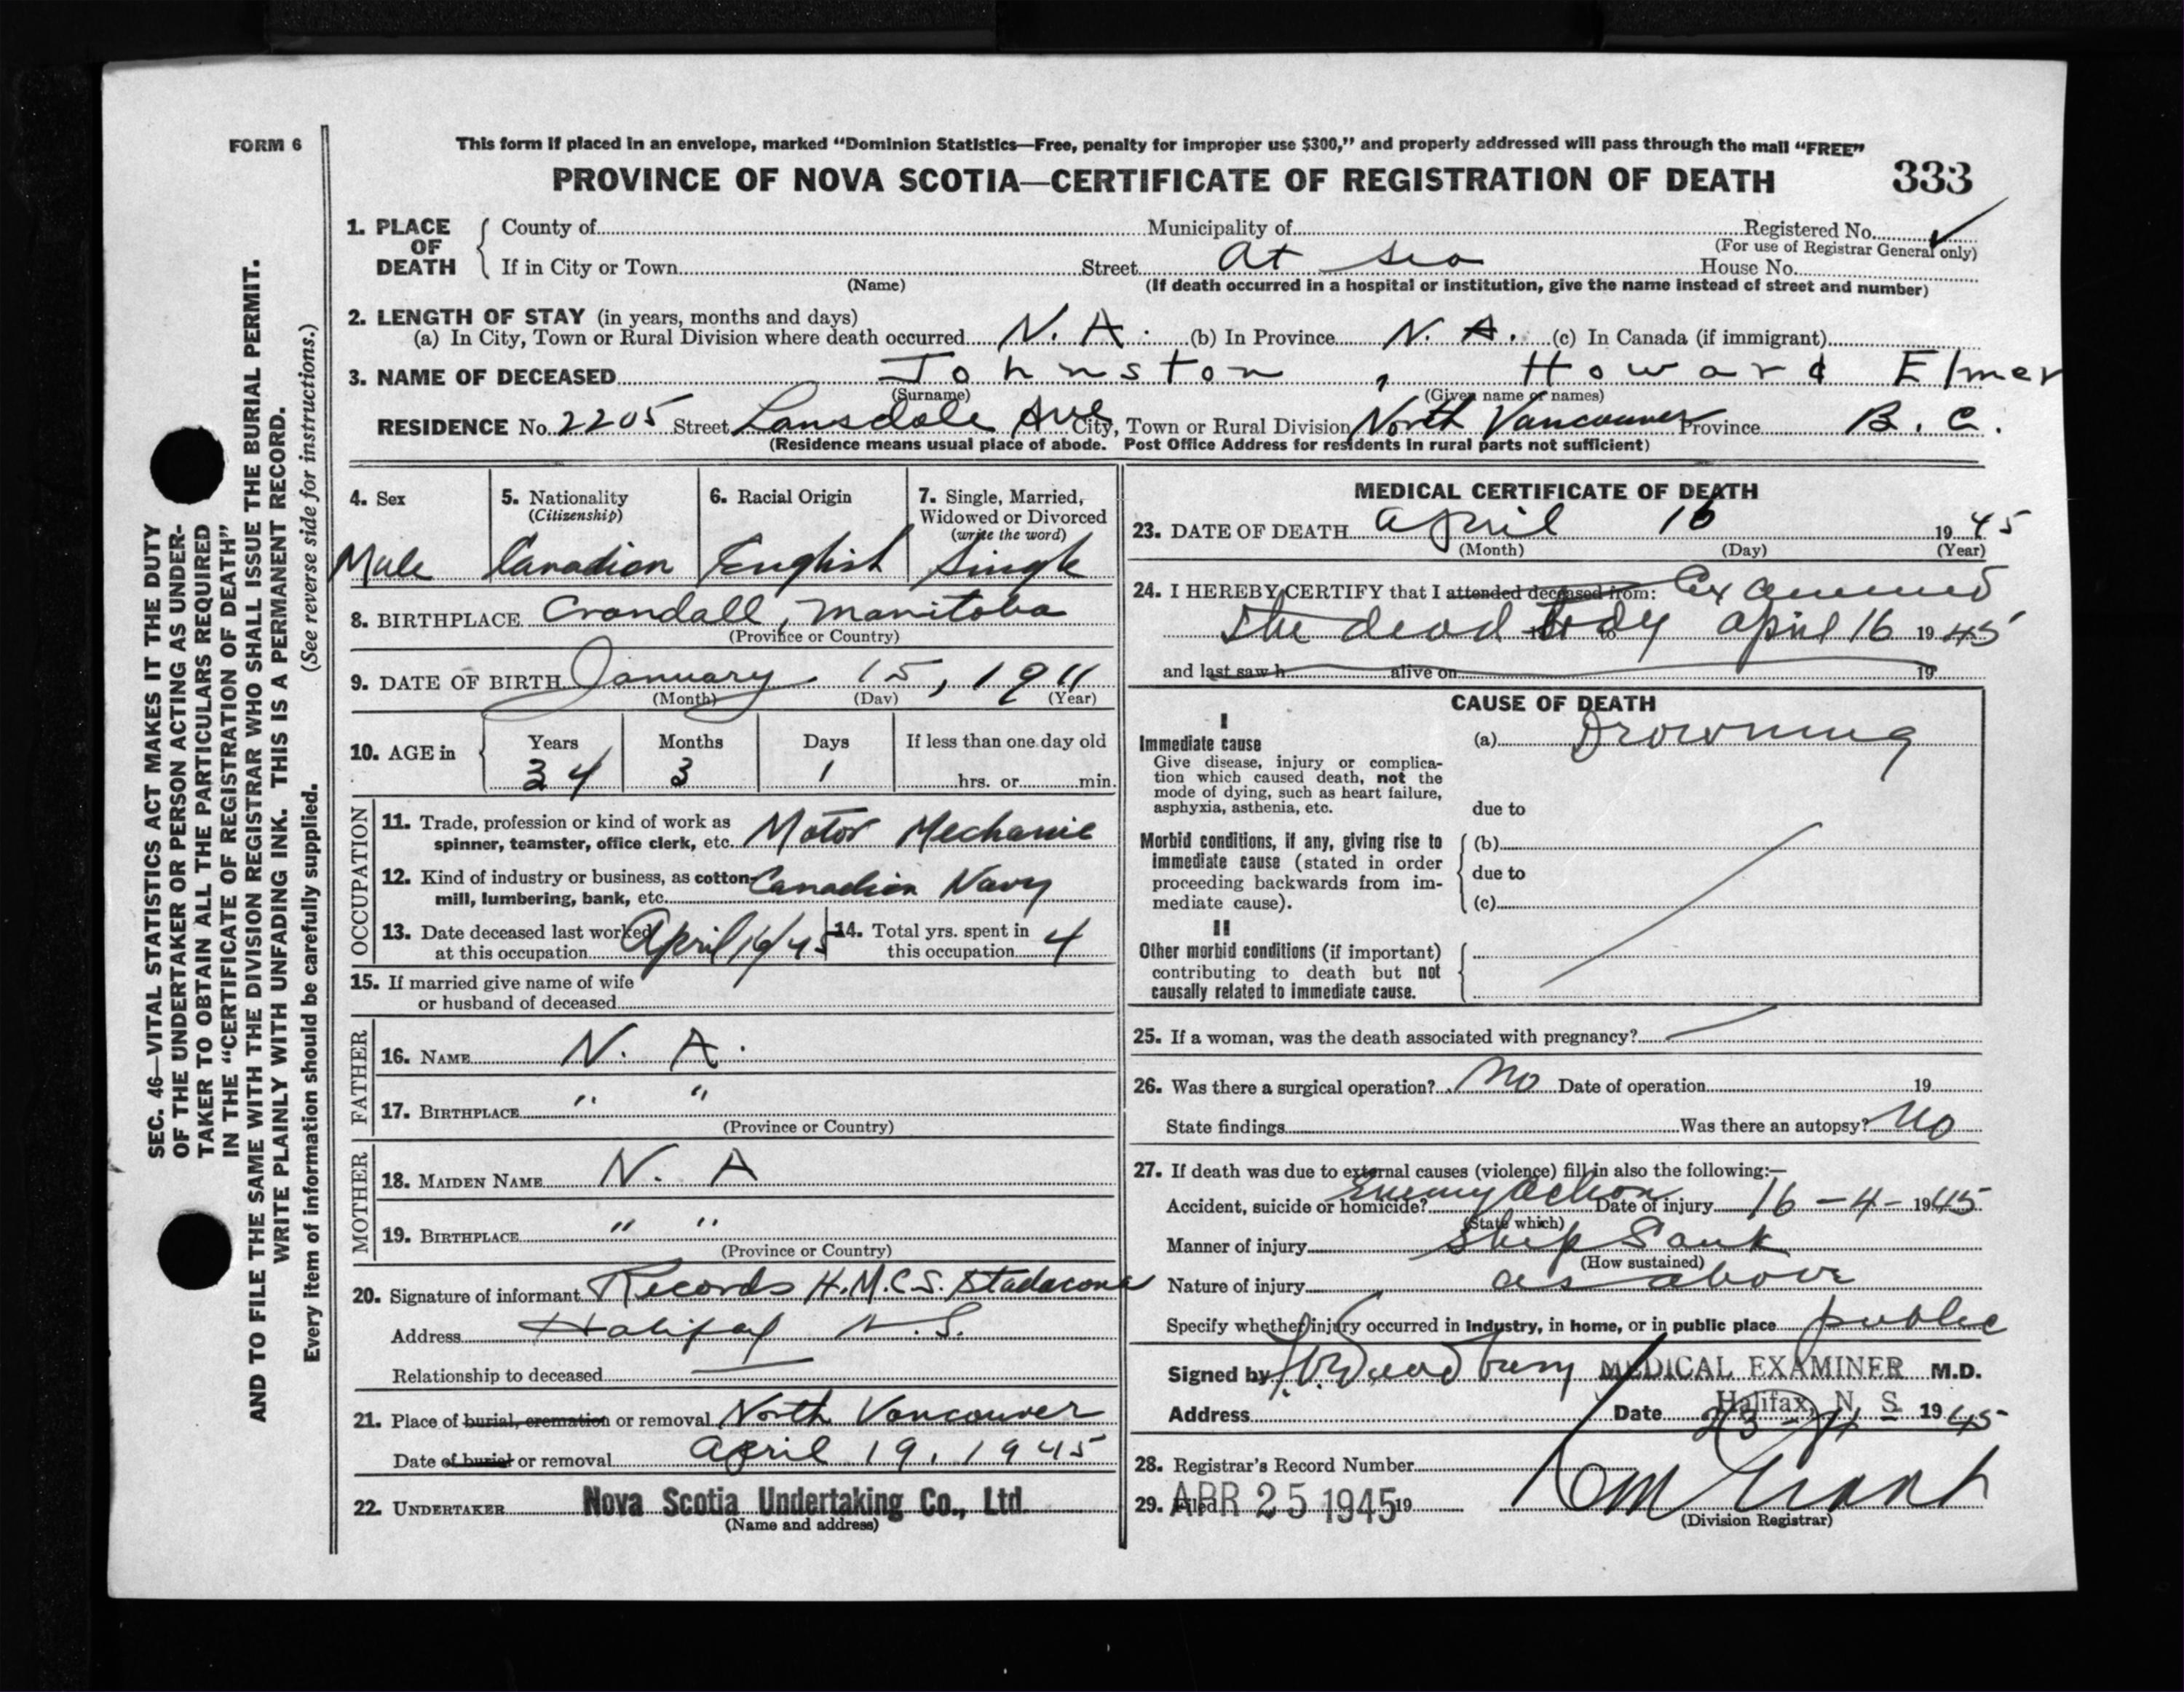 FORM 6
This form if placed in an envelope, marked “Dominion Statistics—Free, penalty for improper use $300,” and properly addressed will pass through the mail “FREE”
PROVINCE OF NOVA SCOTIA—CERTIFICATE OF REGISTRATION OF DEATH 333
1. PLACE OF DEATH
County of Municipality of Registered No.
(For use of Registrar General only)
If in City or Town Street At sea House No.
(Name) (If death occurred in a hospital or institution, give the name instead of street and number)
2. LENGTH OF STAY (in years, months and days)
(a) In City, Town or Rural Division where death occurred N. A. (b) In Province N. A. (c) In Canada (if immigrant)
3. NAME OF DECEASED Johnston , Howard Elmer
(Surname) (Given name or names)
RESIDENCE No. 2205 Street Lansdale Ave City, Town or Rural Division North Vancouver Province B. C.
(Residence means usual place of abode. Post Office Address for residents in rural parts not sufficient)
4. Sex
Male
5. Nationality
(Citizenship)
Canadian
6. Racial Origin
English
7. Single, Married,
Widowed or Divorced
(write the word)
Single
8. BIRTHPLACE Crandall, Manitoba
(Province or Country)
9. DATE OF BIRTH January 15, 1911
(Month) (Day) (Year)
10. AGE in
Years Months Days If less than one day old
34 3 1 hrs. or min.
OCCUPATION
11. Trade, profession or kind of work as
spinner, teamster, office clerk, etc. Motor Mechanic
12. Kind of industry or business, as cotton-
mill, lumbering, bank, etc. Canadian Navy
13. Date deceased last worked
at this occupation April 16/45
14. Total yrs. spent in
this occupation 4
15. If married give name of wife
or husband of deceased
FATHER
16. NAME N. A.
17. BIRTHPLACE " "
(Province or Country)
MOTHER
18. MAIDEN NAME N. A
19. BIRTHPLACE " "
(Province or Country)
20. Signature of informant Records H.M.C.S. Stadacona
Address Halifax N.S.
Relationship to deceased —
21. Place of burial, cremation or removal North Vancouver
Date of burial or removal April 19, 1945
22. UNDERTAKER Nova Scotia Undertaking Co., Ltd.
(Name and address)
MEDICAL CERTIFICATE OF DEATH
23. DATE OF DEATH April 16 1945
(Month) (Day) (Year)
24. I HEREBY CERTIFY that I attended deceased from: Examined
the dead body to April 16 1945
and last saw h alive on 19
CAUSE OF DEATH
I
Immediate cause (a) Drowning
Give disease, injury or complica-
tion which caused death, not the
mode of dying, such as heart failure,
asphyxia, asthenia, etc. due to
Morbid conditions, if any, giving rise to (b)
immediate cause (stated in order
proceeding backwards from im- due to
mediate cause). (c)
II
Other morbid conditions (if important)
contributing to death but not
causally related to immediate cause.
25. If a woman, was the death associated with pregnancy?
26. Was there a surgical operation? No Date of operation 19
State findings Was there an autopsy? No
27. If death was due to external causes (violence) fill in also the following:—
Accident, suicide or homicide? Enemy Action Date of injury 16-4-1945
(State which)
Manner of injury Ship Sank
(How sustained)
Nature of injury as above
Specify whether injury occurred in industry, in home, or in public place public
Signed by MEDICAL EXAMINER M.D.
Halifax, N. S.
Address Date 23-4-1945
28. Registrar's Record Number
29. Filed APR 25 1945 19
(Division Registrar)
SEC. 46—VITAL STATISTICS ACT MAKES IT THE DUTY
OF THE UNDERTAKER OR PERSON ACTING AS UNDER-
TAKER TO OBTAIN ALL THE PARTICULARS REQUIRED
IN THE “CERTIFICATE OF REGISTRATION OF DEATH”
AND TO FILE THE SAME WITH THE DIVISION REGISTRAR WHO SHALL ISSUE THE BURIAL PERMIT.
WRITE PLAINLY WITH UNFADING INK. THIS IS A PERMANENT RECORD.
Every item of information should be carefully supplied. (See reverse side for instructions.)